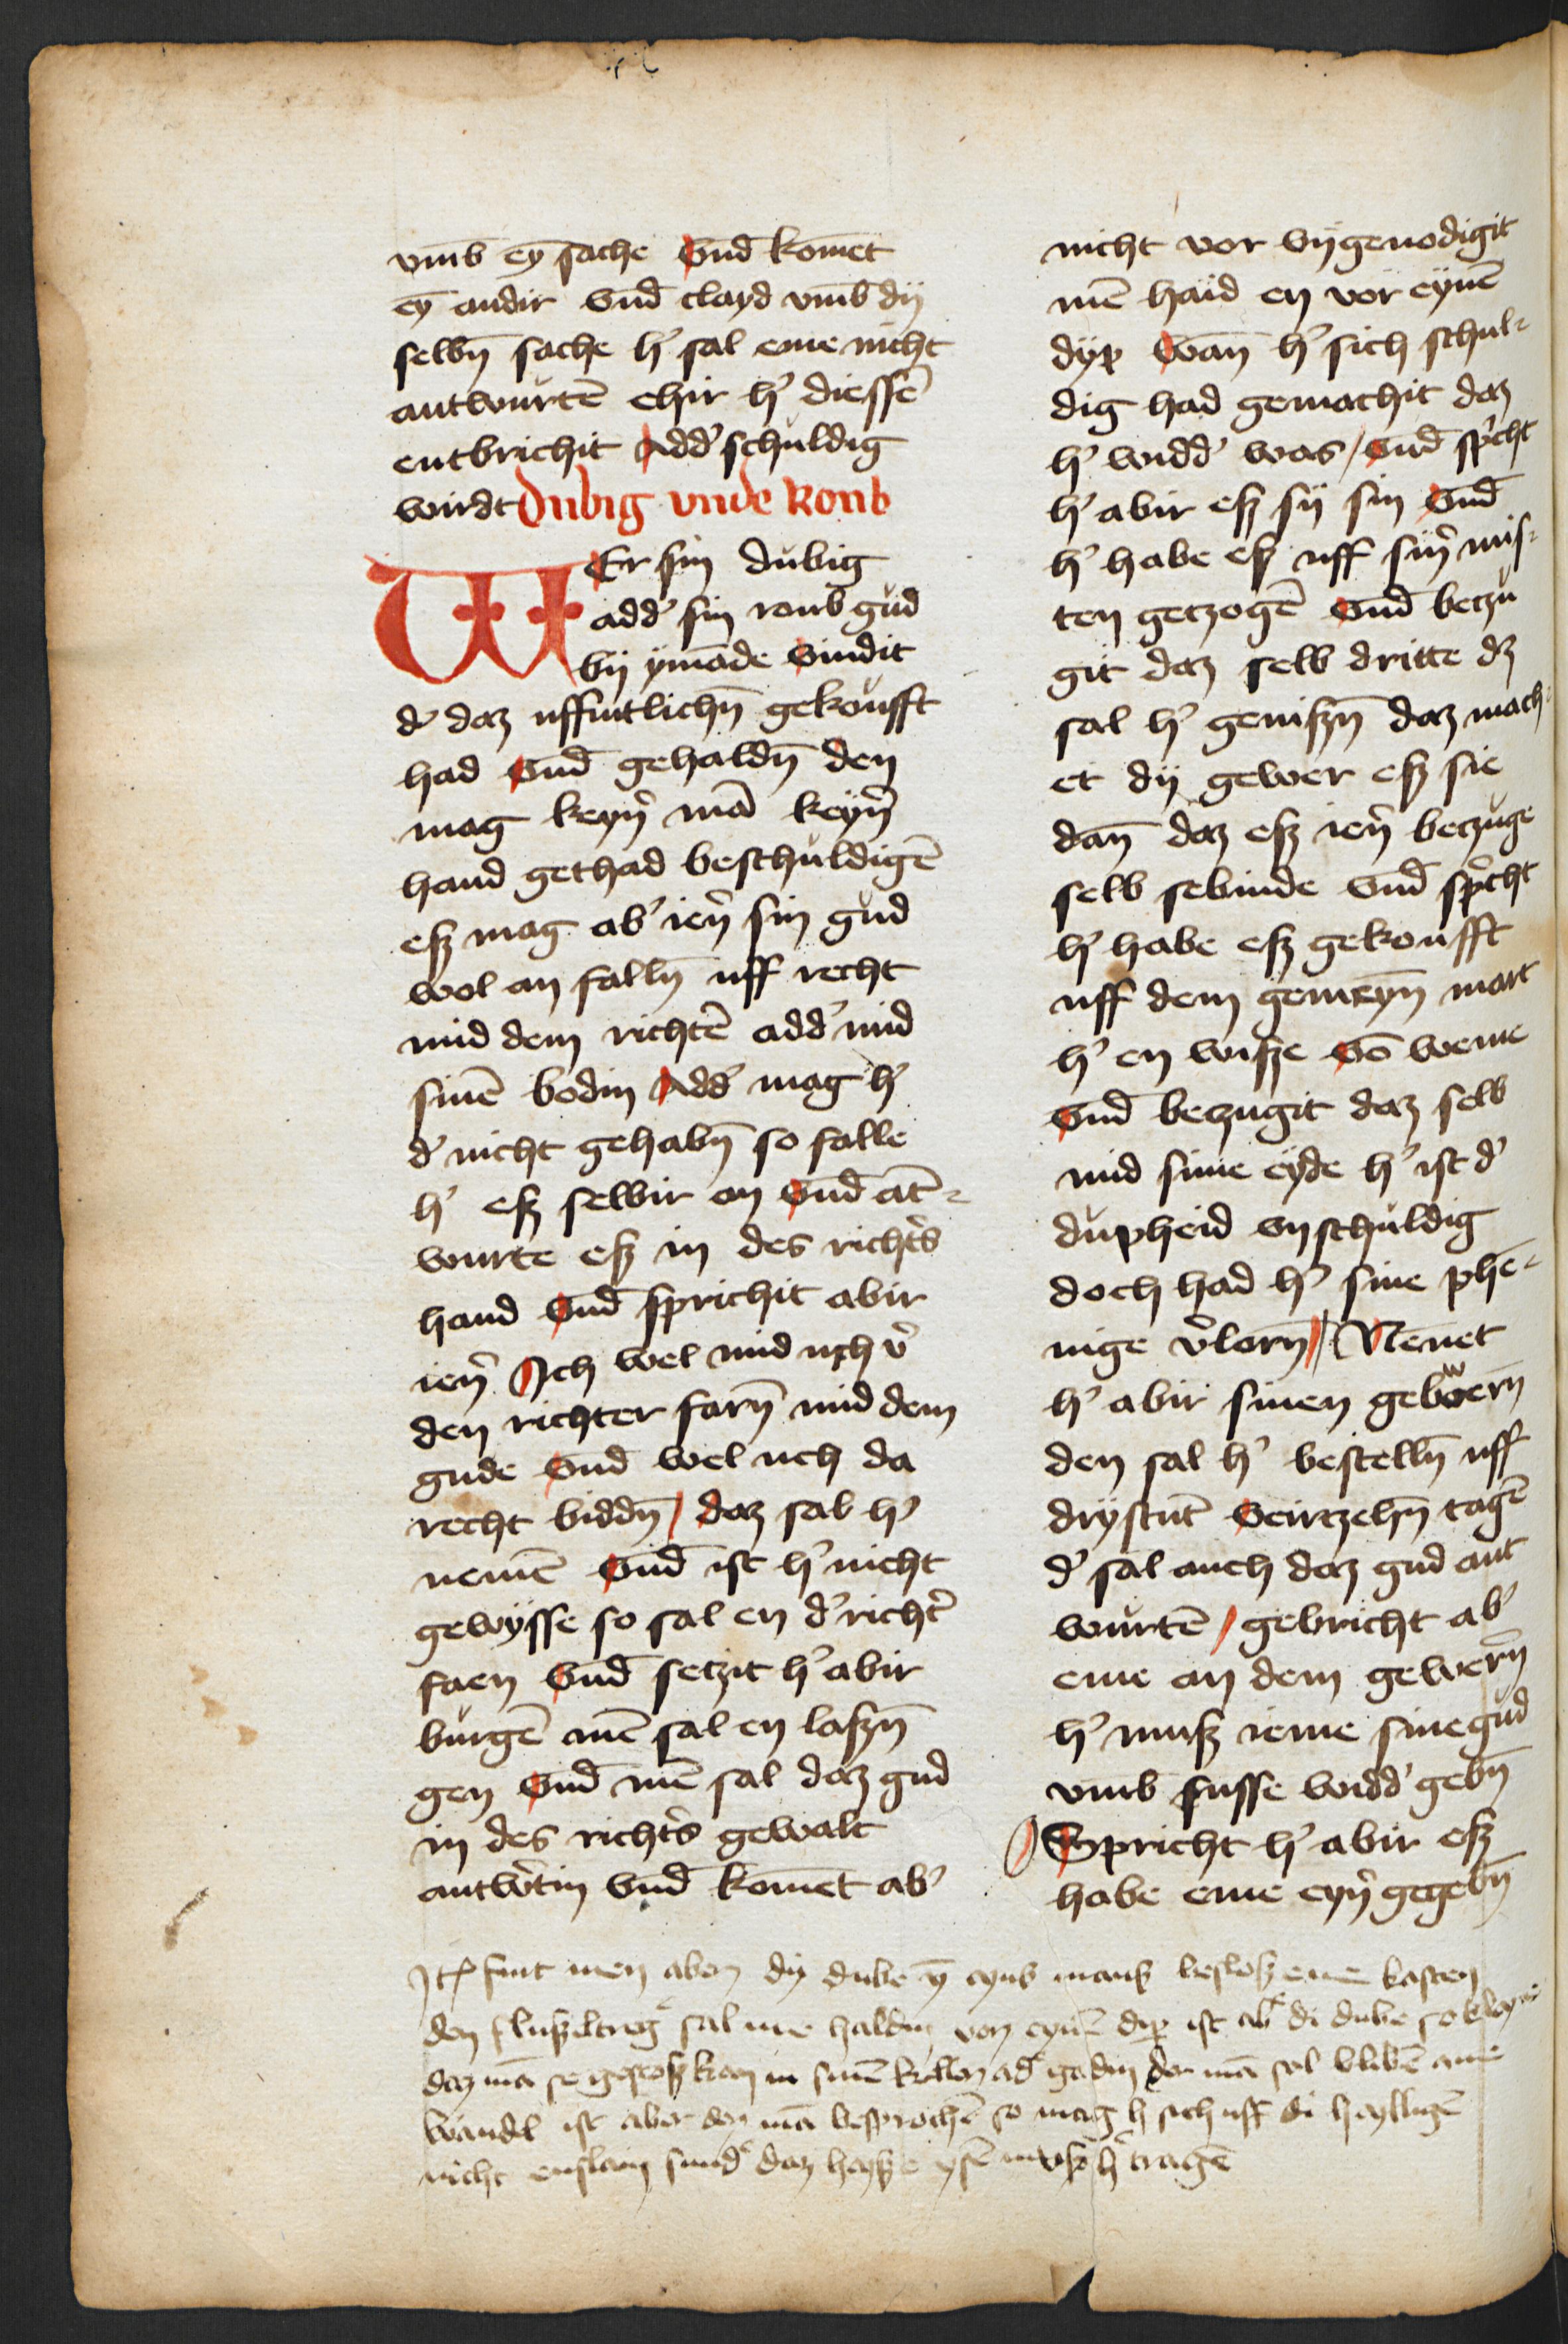 vm̄b ey̅ sache vnd̄ kom̄et
ey̅ andir vnd̄ clayd vm̄b dij
selbn̄ sache h' sal eme nicht
antwurtē ehir h' diessē
entbrichit Add' schuldig
wirdt Dubig vnde Roub
WEr sin dubig
add' sin roub gud
bij ymāde vindit
d' daz uffintlichn̄ gekoufft
had vnd̄ gehaldn̄ den
mag keyn' mā keyn'
hand gethad beschuldigē
esz mag ab' ien' sin gud
wol an falln̄ uff recht
mid dem richtē add' mid
sinē bodin Add' mag h'
d' nicht gehabn̄ so falle
h' esz selbir an vnd̄ āt-
wurte esz in des richt's
hand vnd̄ sprichit abir
ien' Ich wel mid uch v'
den richter farn̄ mid dem
gude vnd̄ wel uch da
recht biddn̄ / daz sal h'
nemē vnd̄ ist h' nicht
gewysse so sal en d' richt'
faen vnd̄ setzit h' abir
burgē mē sal en laszn̄
gen vnd̄ mē sal daz gud
in des richt's gewalt
antw'tin vnd̄ kom̄et ab'
nicht vor vngenodigit
mē haid en vor eynē
dyp wan̄ h' sich schul-
dig had gemachit daz
h' widd' was / vnd̄ sp'cht
h' abir esz sij sin vnd̄
h' habe esz uff sin' mis-
ten getzogē vnd̄ beczu
git daz selb dritte dz
sal h' geniszn̄ daz mach-
et dij gewer esz sie
dan̄ daz esz ien' beczuge
selb sebinde vnd̄ sp'cht
h' habe esz gekoufft
uff dem gemeyn̄ mart
h' en wisze vō weme
vnd̄ beczugit daz selb
mid sime eyde h' ist d'
dupheid vnschuldig
doch had h' sine phē-
nige v'lorn̄ / Nen̄et
h' abir sinen gewern̄
den sal h' bestelln̄ uff
drystūt veirtzehn̄ tagē
d' sal auch daz gud ant
wurtē / gebricht ab'
eme an dem gewern̄
h' musz ieme sine gud
vm̄b susse widd' gebn̄
Spricht h' abir esz
habe eme eyn' gegebn̄
Itē fint men aber dij dube ȳ eyns mansz beslosz eme kasten
den sluszeltreg' sal me haldin vor eynē dip ist ab' di dube so kley
daz mā se gestosz kan in sinē kellen ad' gadin der mā sal blibē ane
wandel ist aber den mā besprochē so mag h sich uff di heylligē
nicht enslain sund' daz heysze ysē musz h' tragē